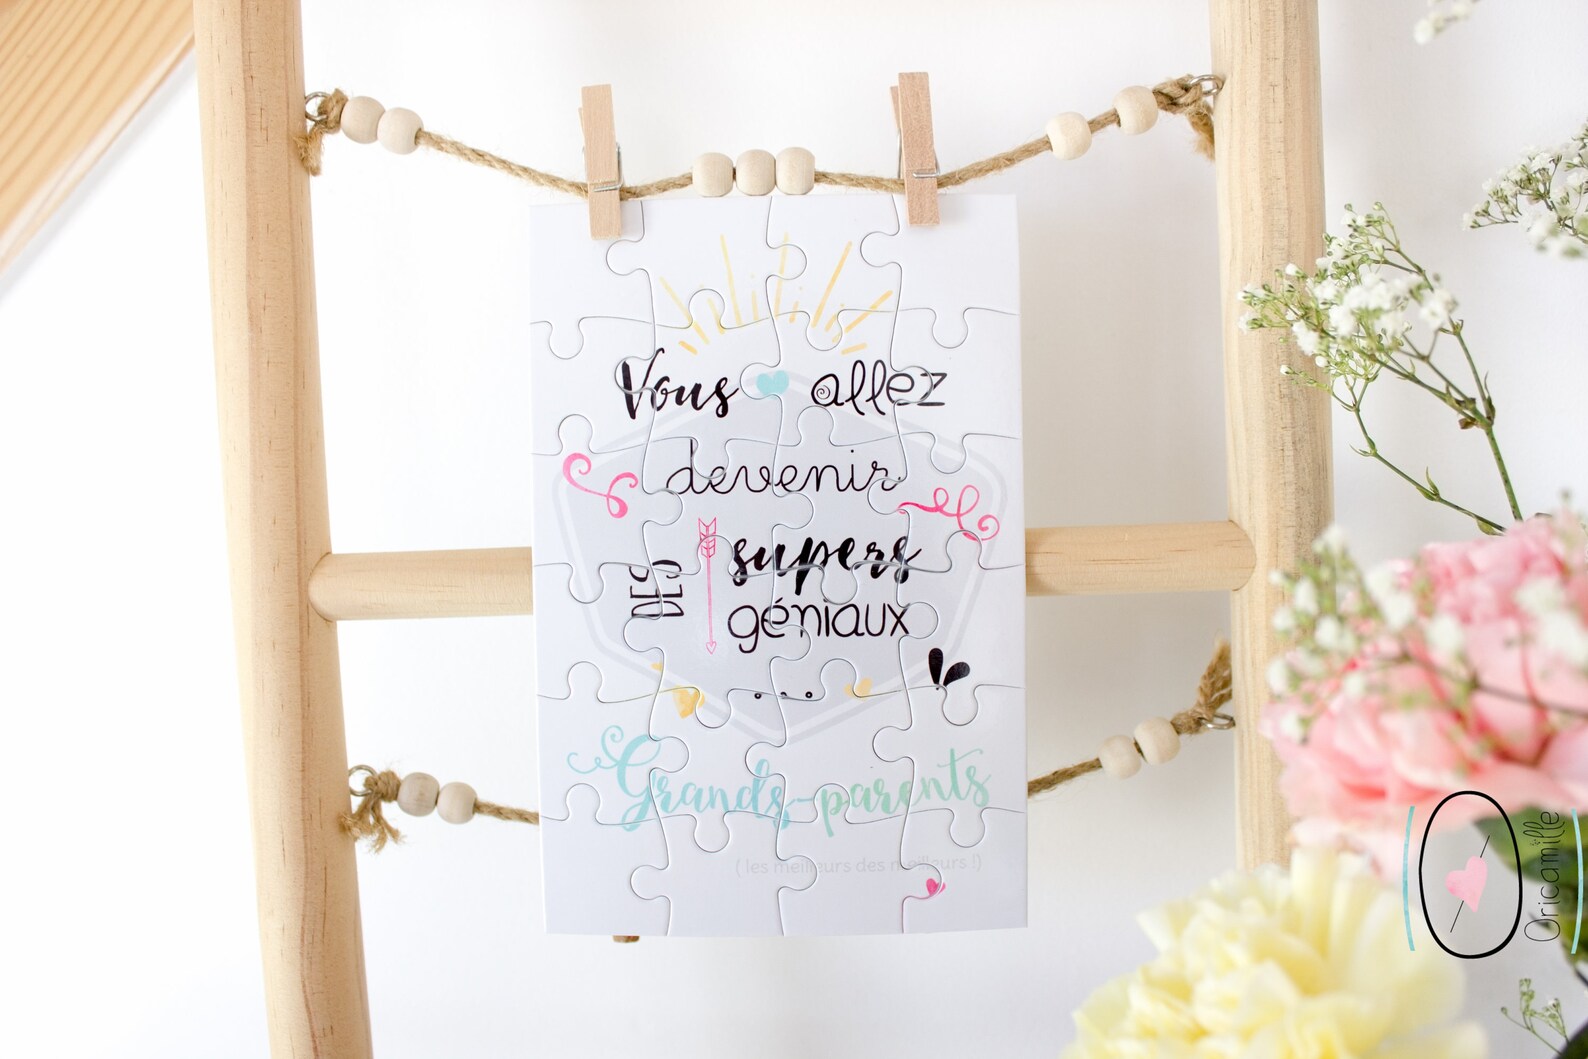 Vous allez
devenir
DES supers
géniaux
...
Grands-parents
( les meilleurs des meilleurs !)
Oricamille